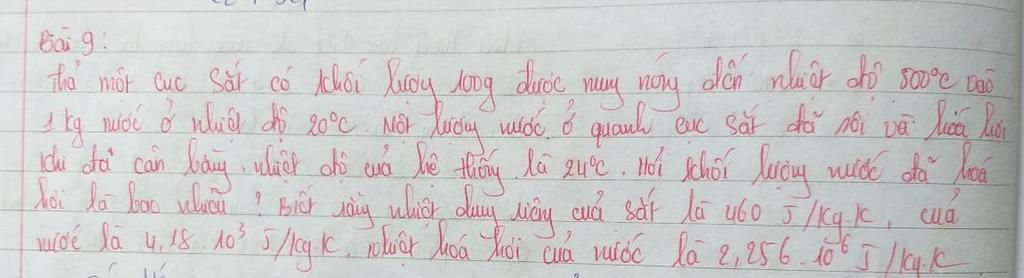 Bài 9:
Thả một cục sắt có khối lượng 100g được nung nóng đến nhiệt độ 500°C vào
1 kg nước ở nhiệt độ 20°C. Một lượng nước ở quanh cục sắt đã sôi và hoá hơi
khi đã cân bằng, nhiệt độ của hệ thống là 24°C. Hỏi khối lượng nước đã hoá
hơi là bao nhiêu? Biết rằng nhiệt dung riêng của sắt là 460 J/kg.K, của
nước là 4,18.10³ J/kg.K. nhiệt hoá hơi của nước là 2,256.10⁶ J/kg.K